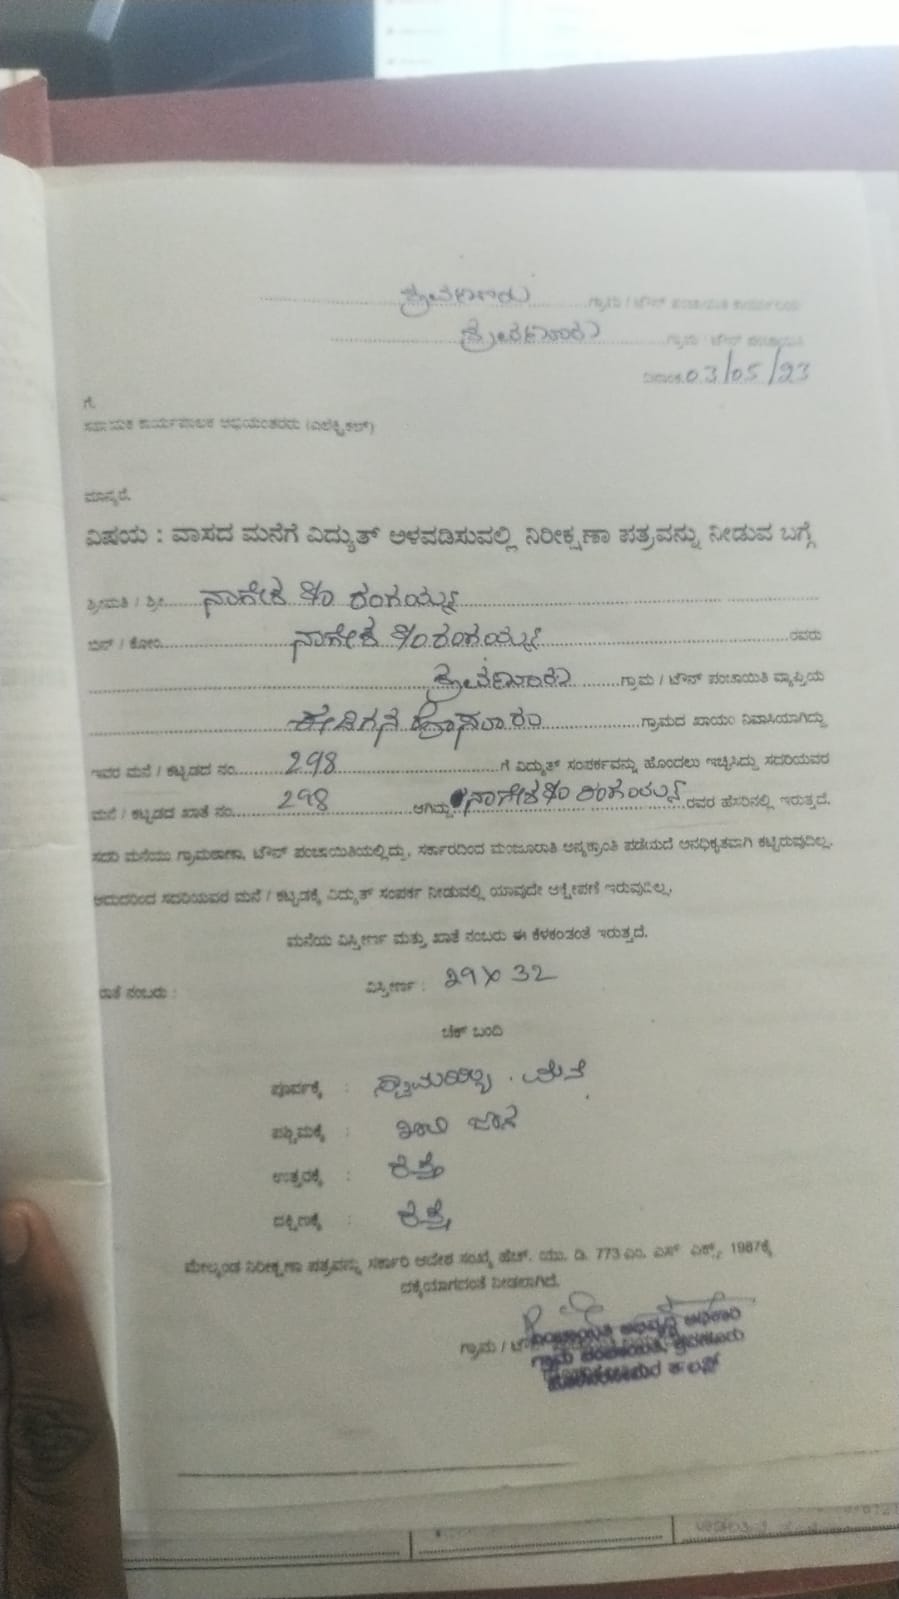 ಶ್ರವಣೂರು ಗ್ರಾಮ / ಟೌನ್ ಪಂಚಾಯಿತಿ ಕಾರ್ಯಾಲಯ
ಶ್ರವಣೂರು ಗ್ರಾಮ / ಟೌನ್ ಪಂಚಾಯಿತಿ
ದಿನಾಂಕ 03/05/23
ಗೆ,
ಸಹಾಯಕ ಕಾರ್ಯಪಾಲಕ ಅಭಿಯಂತರರು (ಎಲೆಕ್ಟ್ರಿಕಲ್)
ಮಾನ್ಯರೆ,
ವಿಷಯ : ವಾಸದ ಮನೆಗೆ ವಿದ್ಯುತ್ ಅಳವಡಿಸುವಲ್ಲಿ ನಿರೀಕ್ಷಣಾ ಪತ್ರವನ್ನು ನೀಡುವ ಬಗ್ಗೆ
ಶ್ರೀಮತಿ / ಶ್ರೀ ನಾಗೇಶ S/o ರಂಗಯ್ಯ
ಬಿನ್ / ಕೋಂ ನಾಗೇಶ S/o ರಂಗಯ್ಯ ರವರು
ಶ್ರವಣೂರು ಗ್ರಾಮ / ಟೌನ್ ಪಂಚಾಯಿತಿ ವ್ಯಾಪ್ತಿಯ
ಗ್ರಾಮದ ಖಾಯಂ ನಿವಾಸಿಯಾಗಿದ್ದು
ಇವರ ಮನೆ / ಕಟ್ಟಡದ ನಂ. 298 ಗೆ ವಿದ್ಯುತ್ ಸಂಪರ್ಕವನ್ನು ಹೊಂದಲು ಇಚ್ಛಿಸಿದ್ದು ಸದರಿಯವರ
ಮನೆ / ಕಟ್ಟಡದ ಖಾತೆ ನಂ. 298 ಆಗಿದ್ದು ನಾಗೇಶ S/o ರಂಗಯ್ಯ ರವರ ಹೆಸರಿನಲ್ಲಿ ಇರುತ್ತದೆ.
ಸದರಿ ಮನೆಯು ಗ್ರಾಮಠಾಣಾ, ಟೌನ್ ಪಂಚಾಯಿತಿಯಲ್ಲಿದ್ದು, ಸರ್ಕಾರದಿಂದ ಮಂಜೂರಾತಿ ಅನ್ಯಕ್ರಾಂತಿ ಪಡೆಯದೆ ಅನಧಿಕೃತವಾಗಿ ಕಟ್ಟಿರುವುದಿಲ್ಲ.
ಆದುದರಿಂದ ಸದರಿಯವರ ಮನೆ / ಕಟ್ಟಡಕ್ಕೆ ವಿದ್ಯುತ್ ಸಂಪರ್ಕ ನೀಡುವಲ್ಲಿ ಯಾವುದೇ ಆಕ್ಷೇಪಣೆ ಇರುವುದಿಲ್ಲ.
ಮನೆಯ ವಿಸ್ತೀರ್ಣ ಮತ್ತು ಖಾತೆ ನಂಬರು ಈ ಕೆಳಕಂಡಂತೆ ಇರುತ್ತದೆ.
ಖಾತೆ ನಂಬರು : ವಿಸ್ತೀರ್ಣ : 29 X 32
ಚೆಕ್ ಬಂದಿ
ಪೂರ್ವಕ್ಕೆ : ಮನೆ
ಪಶ್ಚಿಮಕ್ಕೆ : ಖಾಲಿ ಜಾಗ
ಉತ್ತರಕ್ಕೆ : ರಸ್ತೆ
ದಕ್ಷಿಣಕ್ಕೆ : ರಸ್ತೆ
ಮೇಲ್ಕಂಡ ನಿರೀಕ್ಷಣಾ ಪತ್ರವನ್ನು ಸರ್ಕಾರಿ ಆದೇಶ ಸಂಖ್ಯೆ ಹೆಚ್. ಯು. ಡಿ. 773 ಎಂ. ಎನ್ ಎಕ್ಸ್, 1987ಕ್ಕೆ
ಧಕ್ಕೆಯಾಗದಂತೆ ನೀಡಲಾಗಿದೆ.
ಗ್ರಾಮ / ಟೌನ್
ಪಂಚಾಯಿತಿ ಅಭಿವೃದ್ಧಿ ಅಧಿಕಾರಿ
ಗ್ರಾಮ ಪಂಚಾಯಿತಿ, ಶ್ರವಣೂರು